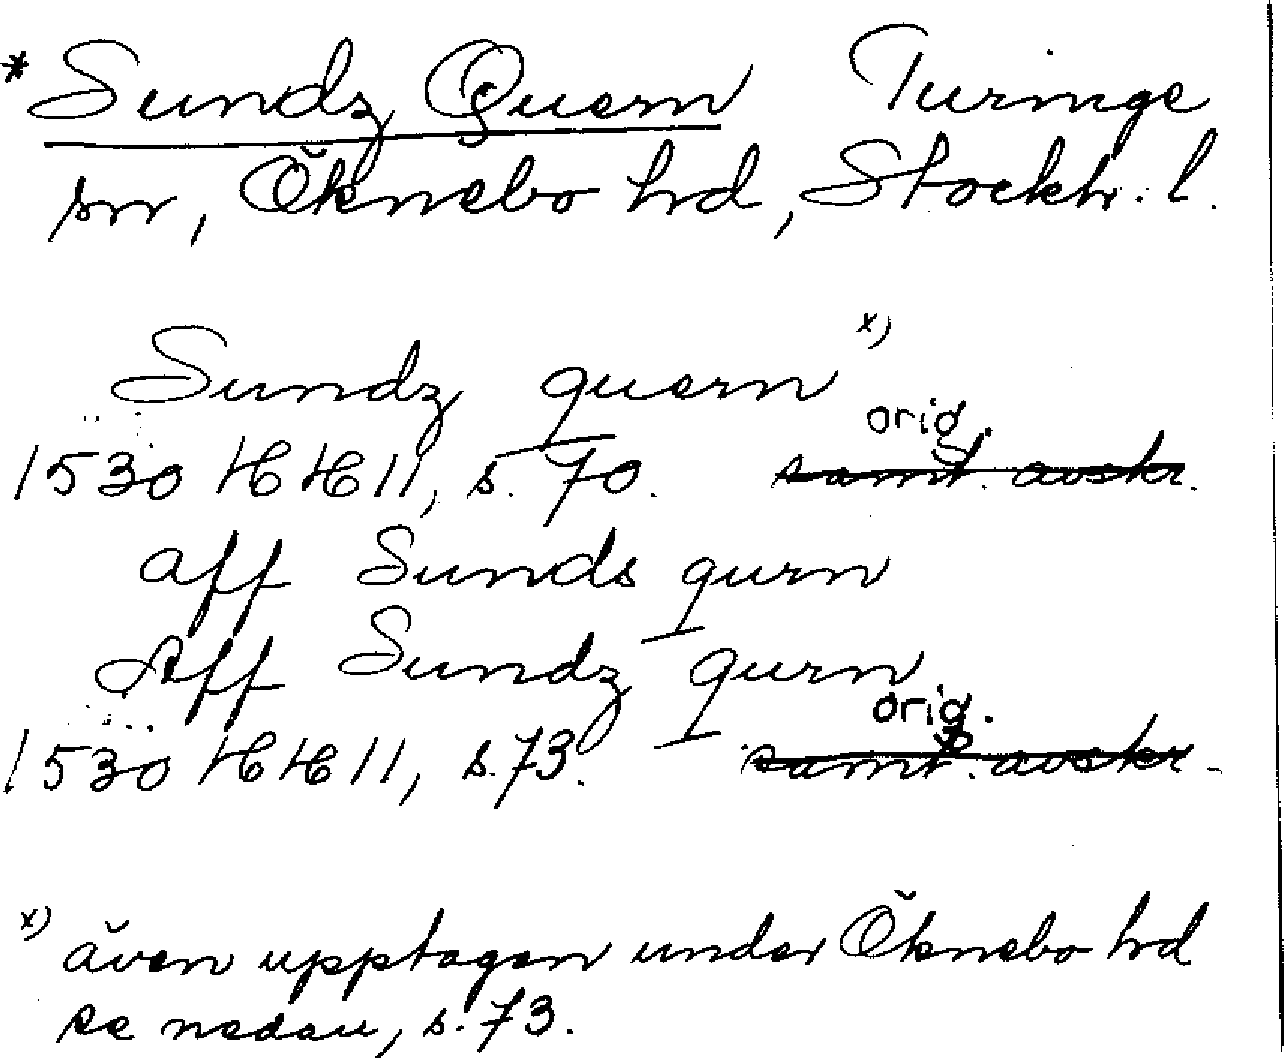 * Sundz Quern Turinge
sn, Öknebo hd, Stockh. l.
Sundz quern x)
orig.
1530 HH 11, s. 70. samt. avskr.
aff Sunds qurn
Aff Sundz qurn
orig.
1530 HH 11, s. 73. samt. avskr.
x) även upptagen under Öknebo hd
se nedan, s. 73.